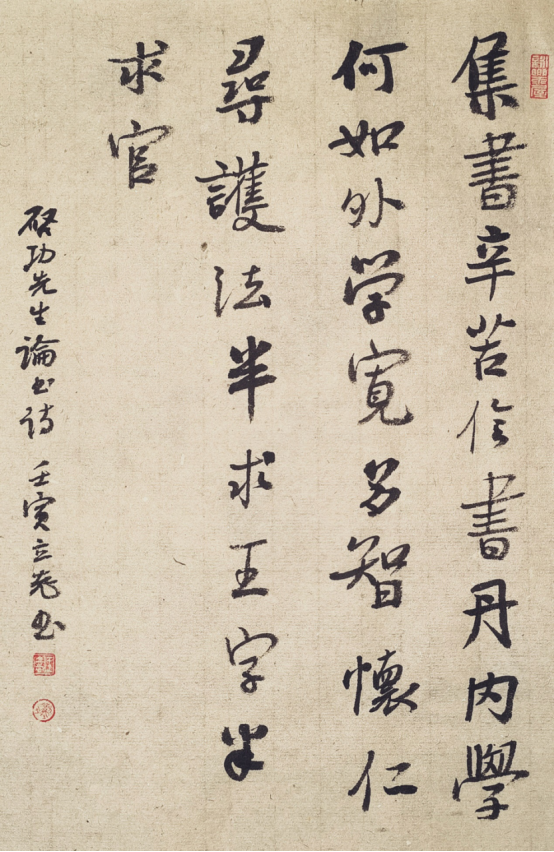 集書辛苦倍書丹内學
何如外学寬多智懷仁
尋護法半求王字半
求官
啓功先生論书诗 壬寅立书